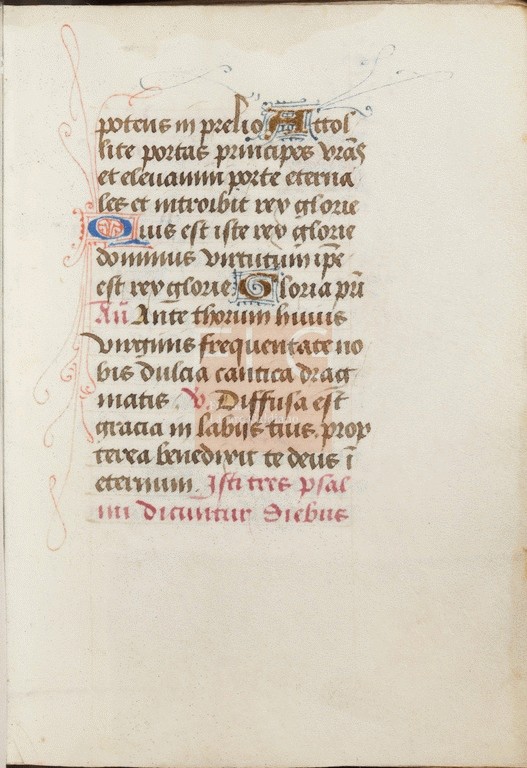 potens in prelio Attol
lite portas principes vrãs
et eleuamini porte eterna
les et introibit rex glorie
Quis est iste rex glorie
dominus virtutum ip̃e
est rex glorie Gloria pr̃i
Añ Ante thorum huius
virginis frequentate no
bis dulcia cantica drag
matis. v. Diffusa est
gracia in labijs tuis. prop
terea benedixit te deus ĩ
eternum. Isti tres psal
mi dicuntur diebus